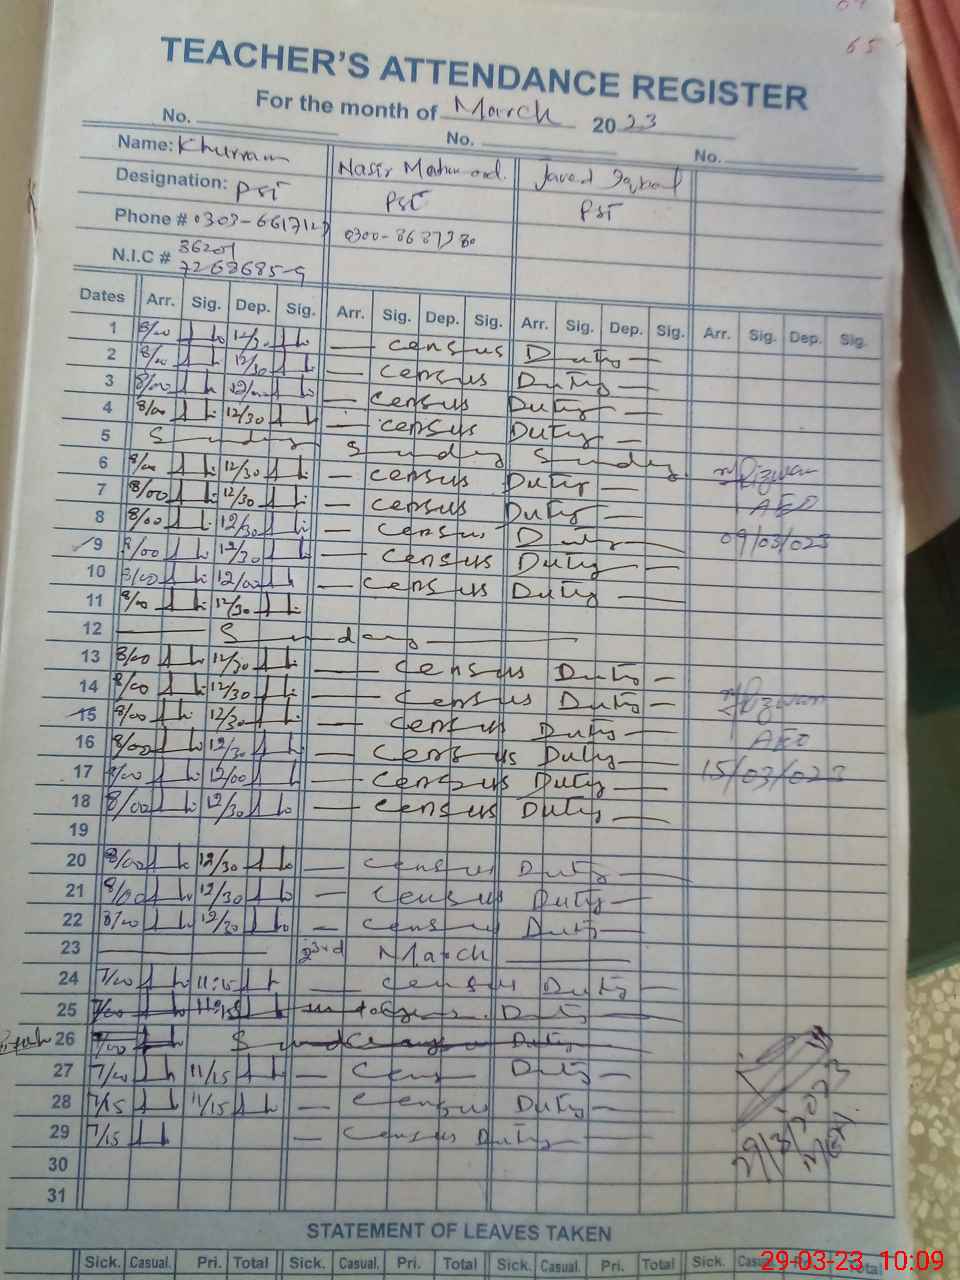 65
TEACHER'S ATTENDANCE REGISTER
For the month of March 2023
No. No. No.
Name: Khurram Nasir Mahmood. Javed Iqbal
Designation: PST PST PST
Phone # 0303-6617127 0300-8687380
N.I.C # 36201
7268685-9
Dates Arr. Sig. Dep. Sig. Arr. Sig. Dep. Sig. Arr. Sig. Dep. Sig. Arr. Sig. Dep. Sig.
1 8/00 12/30 — census Duty —
2 8/00 12/30 — census Duty —
3 8/00 12/00 — census Duty —
4 8/00 12/30 — census Duty —
5 Sunday Sunday Sunday
6 8/00 12/30 — census Duty — Rizwan
7 8/00 12/30 — census Duty — AEO
8 8/00 12/30 — census Duty — 09/03/023
9 8/00 12/30 — census Duty —
10 8/00 12/00 — census Duty —
11 8/00 12/30
12 — Sunday —
13 8/00 12/30 — census Duty —
14 8/00 12/30 — census Duty — Rizwan
15 8/00 12/30 — census Duty — AEO
16 8/00 12/30 — census Duty — 15/03/023
17 8/00 12/00 — census Duty —
18 8/00 12/30 — census Duty —
19
20 8/00 12/30 — census Duty —
21 8/00 12/30 — census Duty —
22 8/00 12/30 — census Duty —
23 — 23rd March —
24 7/00 11:15 — census Duty —
25 7/00 11:15 Duty —
26 7/00 Sunday Duty
27 7/00 11/15 — Cens Duty —
28 7/15 11/15 — census Duty —
29 7/15 — census Duty —
30
31
STATEMENT OF LEAVES TAKEN
Sick. Casual. Pri. Total Sick. Casual. Pri. Total Sick. Casual. Pri. Total Sick.
29-03-23 10:09